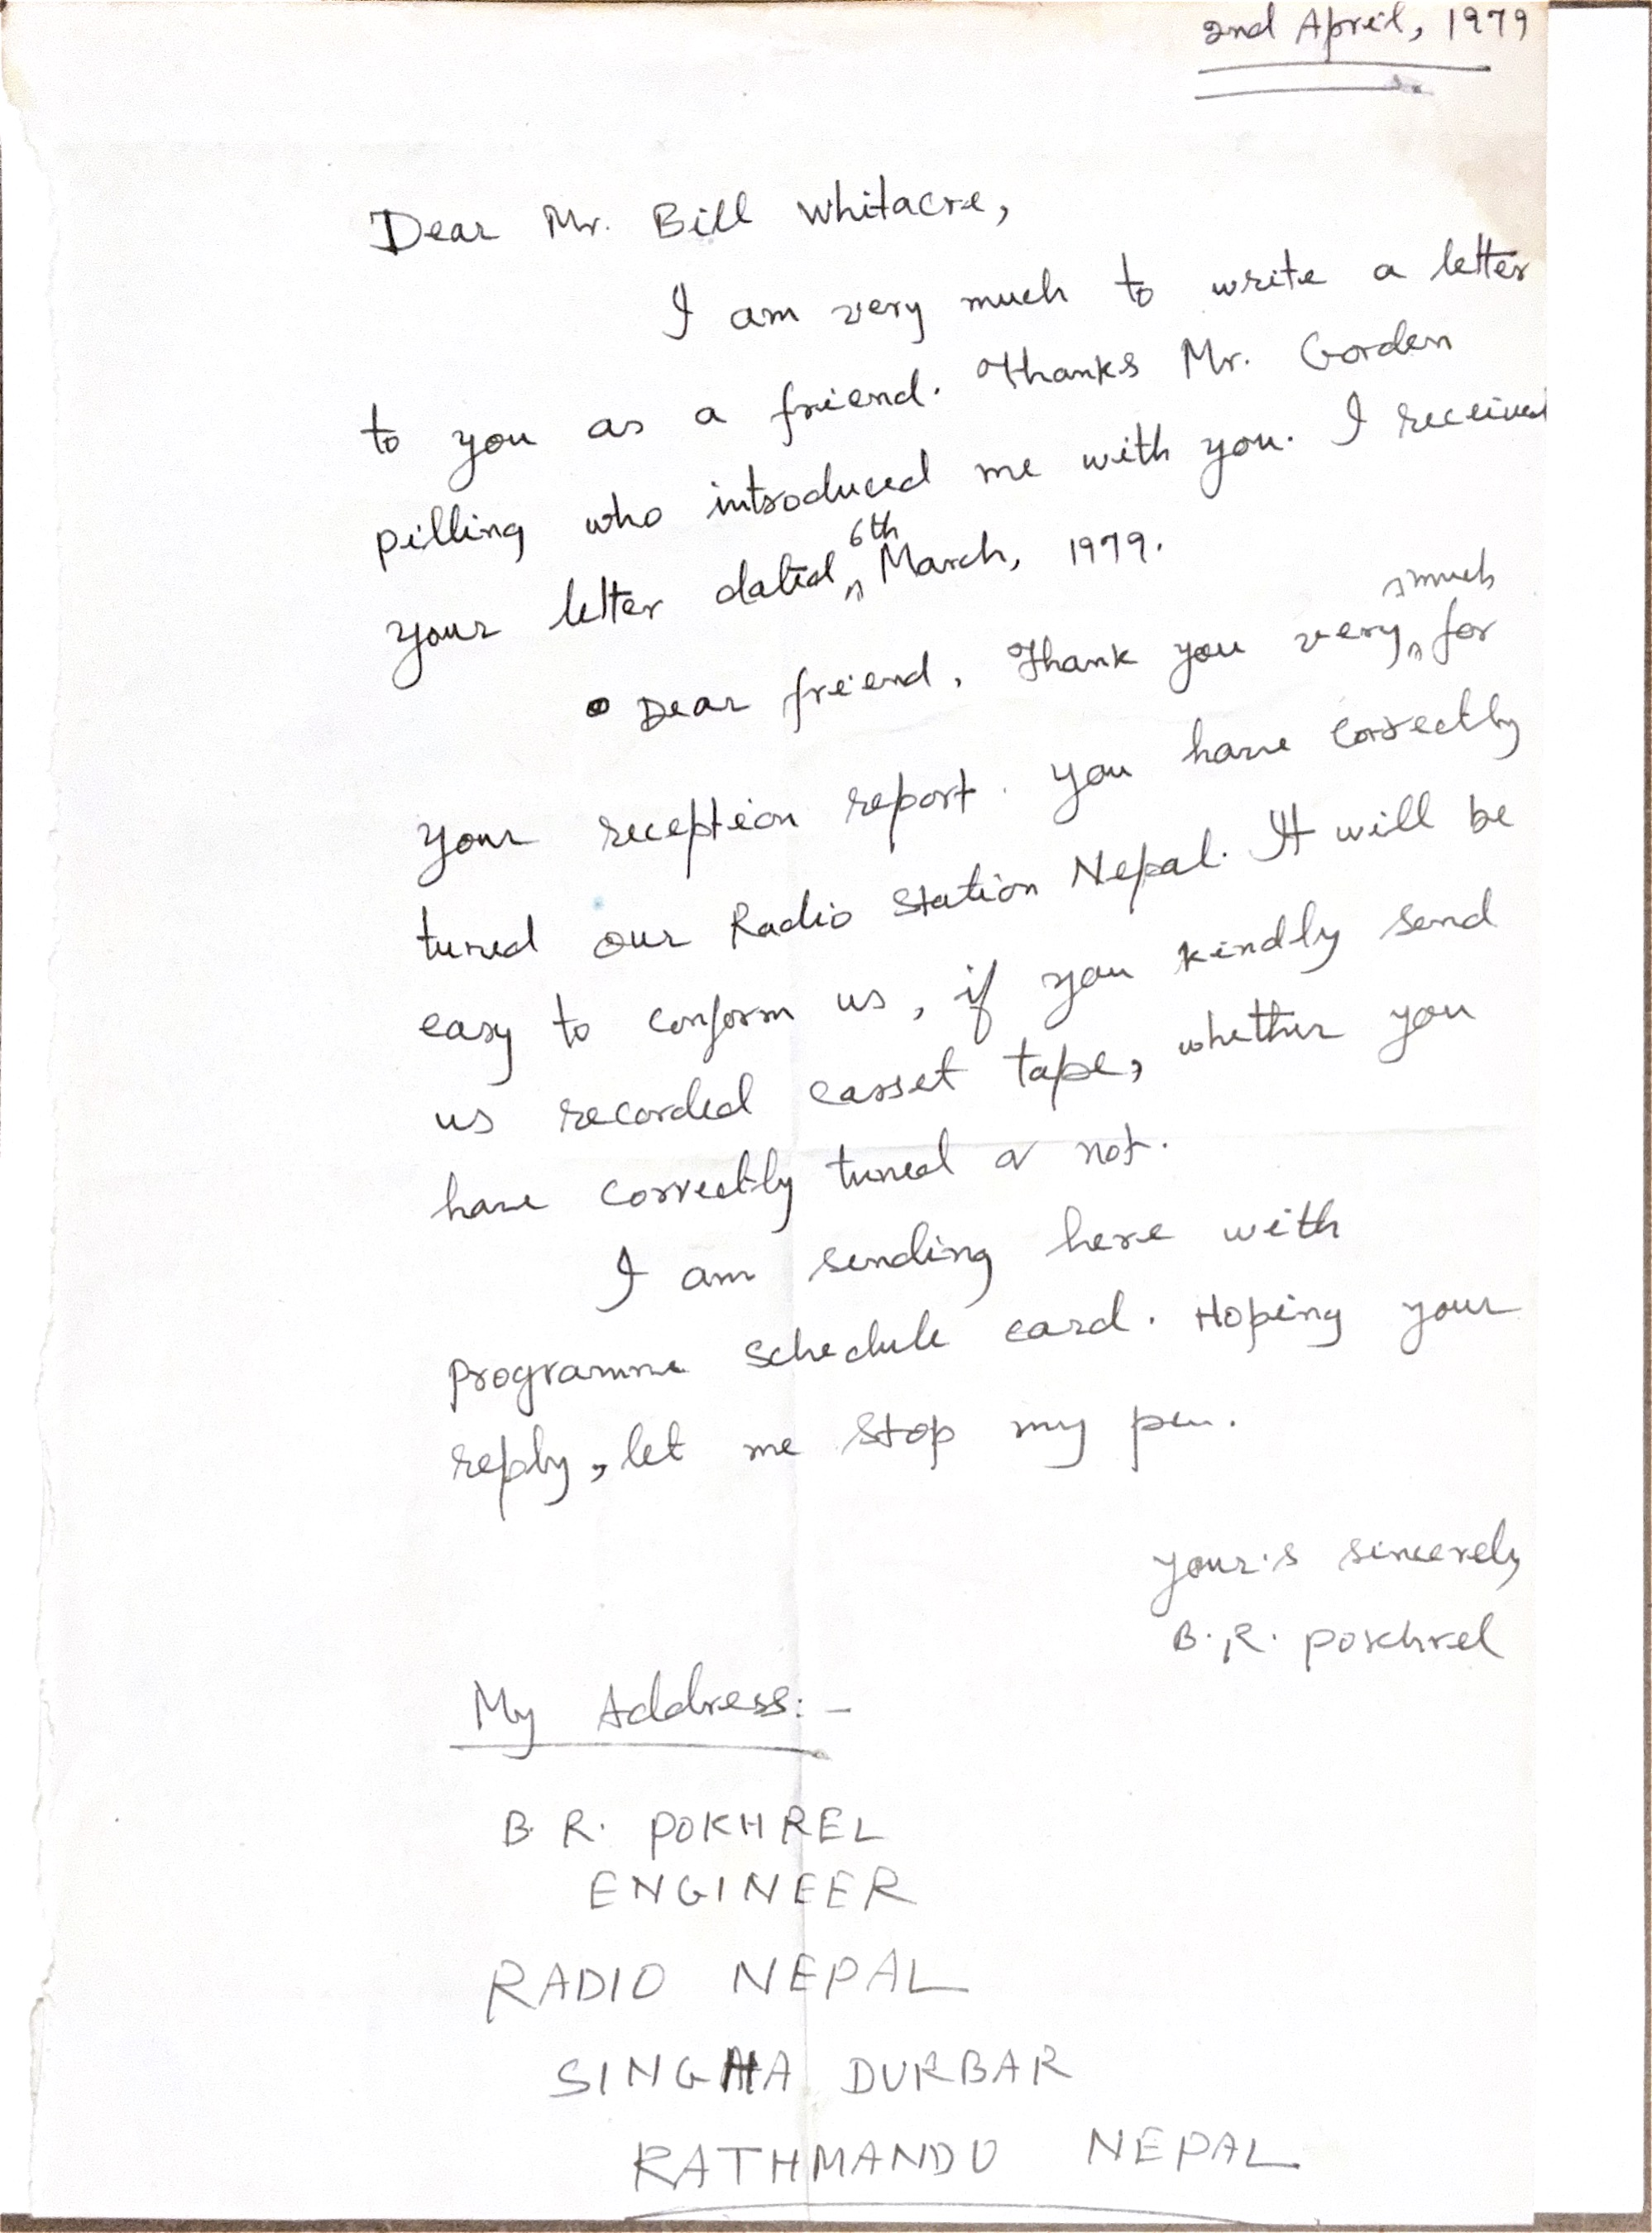 2nd April, 1979
Dear Mr. Bill Whitacre,
I am very much to write a letter
to you as a friend. Thanks Mr. Gorden
pilling who introduced me with you. I received
your letter dated 6th March, 1979.
Dear friend, Thank you very much for
your reception report. you have correctly
tuned our Radio Station Nepal. It will be
easy to conform us, if you kindly send
us recorded casset tape, whether you
have correctly tuned or not.
I am sending here with
programme schedule card. Hoping your
reply, let me stop my pen.
your's sincerely
B.R. pokhrel
My Address:-
B. R. POKHREL
ENGINEER
RADIO NEPAL
SINGHA DURBAR
KATHMANDU NEPAL